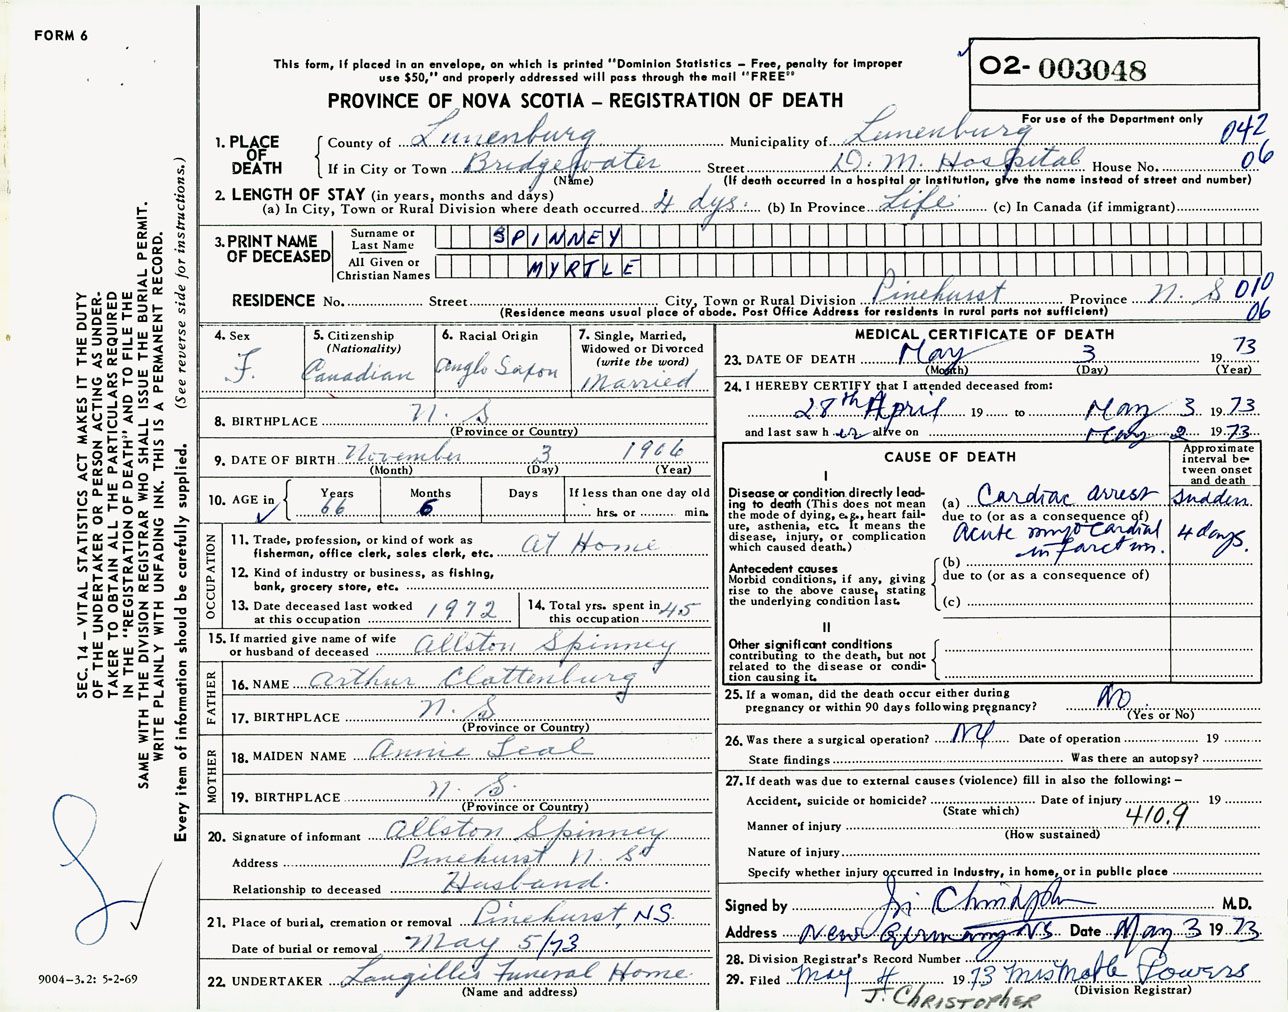 FORM 6
This form, if placed in an envelope, on which is printed "Dominion Statistics – Free, penalty for improper
use $50," and properly addressed will pass through the mail "FREE"
PROVINCE OF NOVA SCOTIA – REGISTRATION OF DEATH
O2- 003048
For use of the Department only
042
06
1. PLACE OF DEATH
County of Lunenburg Municipality of Lunenburg
If in City or Town Bridgewater Street D. M. Hospital House No.
(Name) (If death occurred in a hospital or institution, give the name instead of street and number)
2. LENGTH OF STAY (in years, months and days)
(a) In City, Town or Rural Division where death occurred 4 dys. (b) In Province Life (c) In Canada (if immigrant)
3. PRINT NAME OF DECEASED
Surname or Last Name SPINNEY
All Given or Christian Names MYRTLE
RESIDENCE No. Street City, Town or Rural Division Pinehurst Province N. S 010
(Residence means usual place of abode. Post Office Address for residents in rural parts not sufficient) 06
4. Sex F.
5. Citizenship (Nationality) Canadian
6. Racial Origin Anglo Saxon
7. Single, Married, Widowed or Divorced (write the word) Married
8. BIRTHPLACE N. S
(Province or Country)
9. DATE OF BIRTH November 3 1906
(Month) (Day) (Year)
10. AGE in Years 66 Months 6 Days If less than one day old hrs. or min.
OCCUPATION
11. Trade, profession, or kind of work as
fisherman, office clerk, sales clerk, etc. At Home
12. Kind of industry or business, as fishing,
bank, grocery store, etc.
13. Date deceased last worked at this occupation 1972
14. Total yrs. spent in this occupation 45
15. If married give name of wife or husband of deceased Allston Spinney
FATHER
16. NAME Arthur Clattenburg
17. BIRTHPLACE N. S
(Province or Country)
MOTHER
18. MAIDEN NAME Annie Leal
19. BIRTHPLACE N. S.
(Province or Country)
20. Signature of informant Allston Spinney
Address Pinehurst N. S
Relationship to deceased Husband.
21. Place of burial, cremation or removal Pinehurst, N.S.
Date of burial or removal May 5/73
22. UNDERTAKER Langille's Funeral Home
(Name and address)
MEDICAL CERTIFICATE OF DEATH
23. DATE OF DEATH May 3 1973
(Month) (Day) (Year)
24. I HEREBY CERTIFY that I attended deceased from:
28th April 19 to May 3 1973
and last saw her alive on May 2 1973
CAUSE OF DEATH
Approximate interval between onset and death
I
Disease or condition directly leading to death (This does not mean the mode of dying, e.g., heart failure, asthenia, etc. It means the disease, injury, or complication which caused death.)
(a) Cardiac arrest sudden
due to (or as a consequence of)
Acute myocardial infarction. 4 days.
Antecedent causes
Morbid conditions, if any, giving rise to the above cause, stating the underlying condition last.
(b)
due to (or as a consequence of)
(c)
II
Other significant conditions
contributing to the death, but not related to the disease or condition causing it.
25. If a woman, did the death occur either during
pregnancy or within 90 days following pregnancy? No
(Yes or No)
26. Was there a surgical operation? No Date of operation 19
State findings Was there an autopsy?
27. If death was due to external causes (violence) fill in also the following: –
Accident, suicide or homicide? Date of injury 19
(State which)
Manner of injury 410.9
(How sustained)
Nature of injury
Specify whether injury occurred in industry, in home, or in public place
Signed by M.D.
Address New Germany NS Date May 3 1973
28. Division Registrar's Record Number
29. Filed May 4 1973 Mrs Mable Powers
(Division Registrar)
J. CHRISTOPHER
SEC. 14 – VITAL STATISTICS ACT MAKES IT THE DUTY
OF THE UNDERTAKER OR PERSON ACTING AS UNDER-
TAKER TO OBTAIN ALL THE PARTICULARS REQUIRED
IN THE "REGISTRATION OF DEATH" AND TO FILE THE
SAME WITH THE DIVISION REGISTRAR WHO SHALL ISSUE THE BURIAL PERMIT.
WRITE PLAINLY WITH UNFADING INK. THIS IS A PERMANENT RECORD.
Every item of information should be carefully supplied. (See reverse side for instructions.)
9004–3.2: 5-2-69